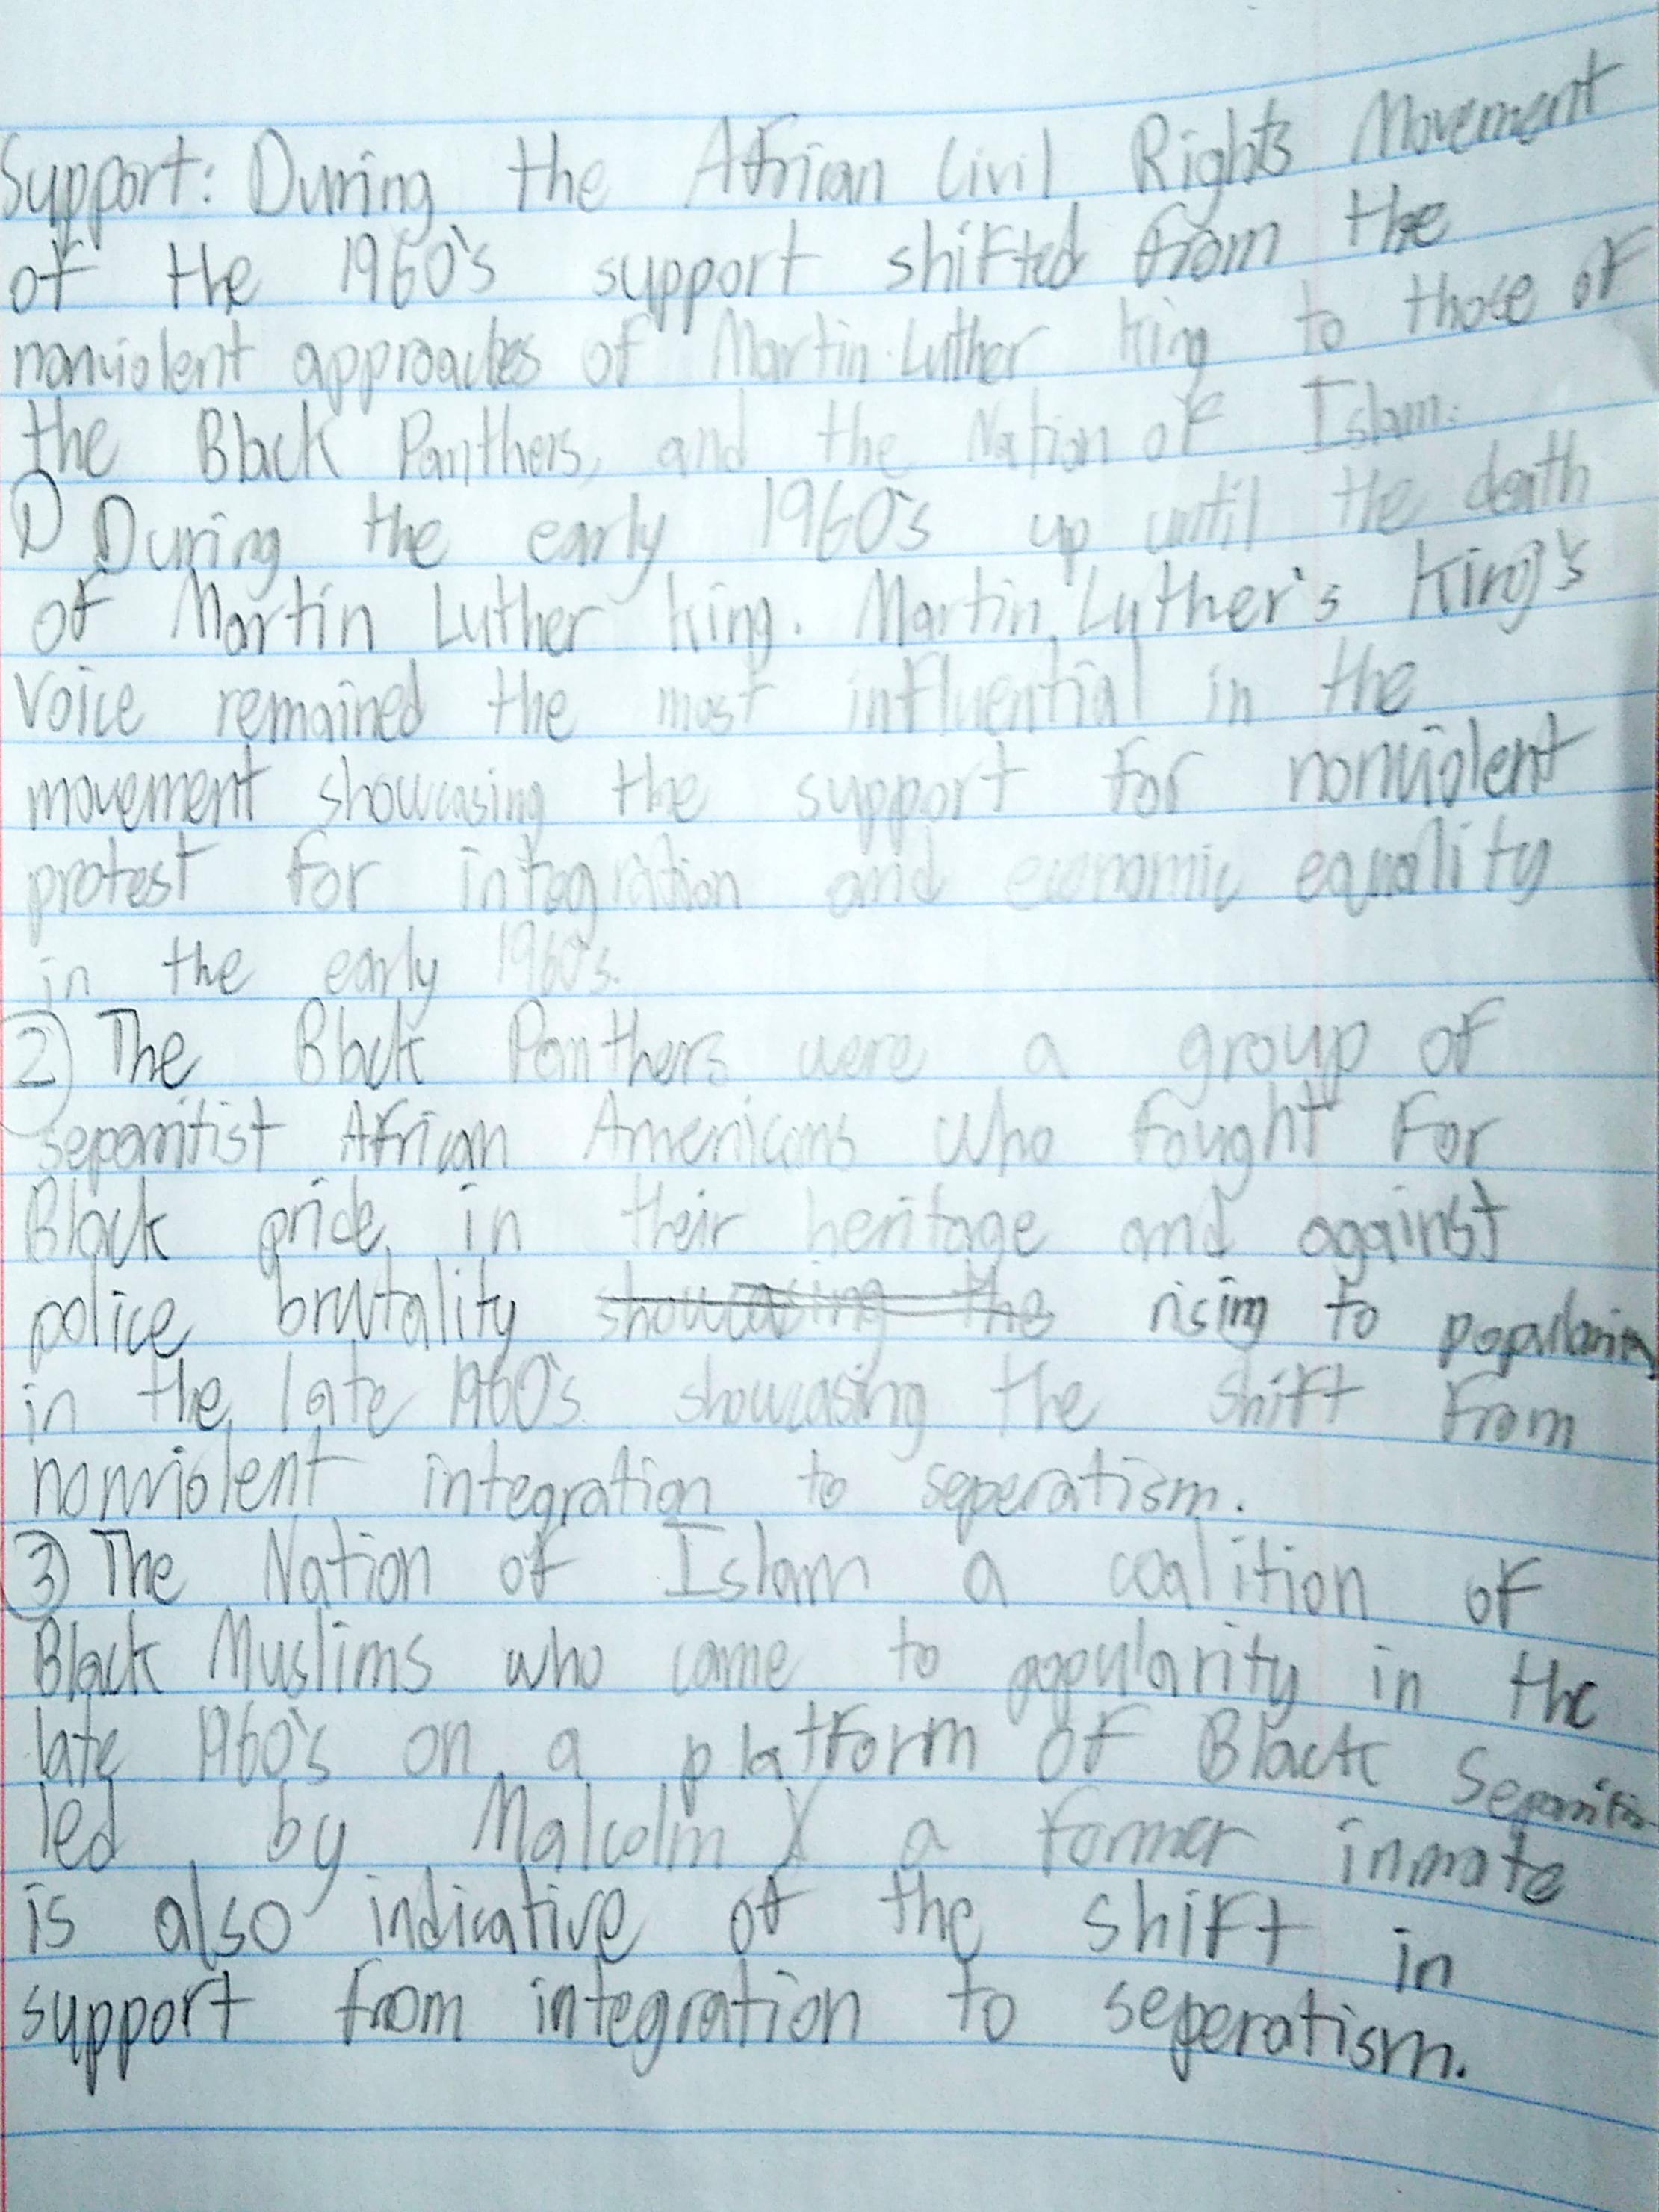 Support: During the African Civil Rights Movement
of the 1960's support shifted from the
nonviolent approaches of Martin Luther King to those of
the Black Panthers, and the Nation of Islam.
1) During the early 1960's up until the death
of Martin Luther King. Martin Luther's King's
voice remained the most influential in the
movement showcasing the support for nonviolent
protest for integration and economic equality
in the early 1960's.
2) The Black Panthers were a group of
separitist African Americans who fought for
Black pride in their heritage and against
police brutality showcasing the rising to popularity
in the late 1960's showcasing the shift from
nonviolent integration to seperatism.
3) The Nation of Islam a coalition of
Black Muslims who came to popularity in the
late 1960's on a platform of Black
led by Malcolm X a former inmate
is also indicative of the shift in
support from integration to seperatism.